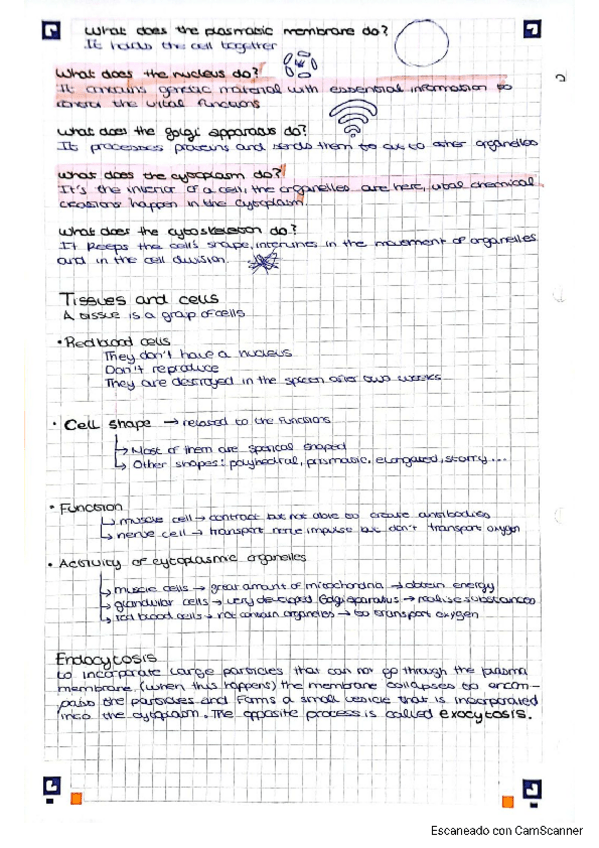 What does the plasmatic membrane do?
It holds the cell together
What does the nucleus do?
It contains genetic material with essential information to
control the vital functions
What does the Golgi apparatus do?
It processes proteins and sends them to out to other organelles
What does the cytoplasm do?
It's the interior of a cell, the organelles are here, vital chemical
reactions happen in the cytoplasm.
What does the cytoskeleton do?
It keeps the cells shape, intervines in the movement of organelles
and in the cell division.
Tissues and cells
A tissue is a group of cells
• Red blood cells
They don't have a nucleus
Don't reproduce
They are destroyed in the spleen after two weeks
• Cell shape → related to the functions
→ Most of them are sperical shaped
→ Other shapes: polyhedral, prismatic, elongated, starry...
• Function
→ muscle cell → contract but not able to create antibodies
→ nerve cell → transport nerve impulse but don't transport oxygen
• Activity of cytoplasmic organelles
→ muscle cells → great amount of mitochondria → obtain energy
→ glandular cells → very developed Golgi apparatus → realise substances
→ red blood cells → not contain organelles → to transport oxygen
Endocytosis
to incorporate large particles that can not go through the plasma
membrane, (when this happens) the membrane collapses to encom-
pass the particles and forms a small vesicle that is incorporated
into the cytoplasm. The opposite process is called exocytosis.
Escaneado con CamScanner